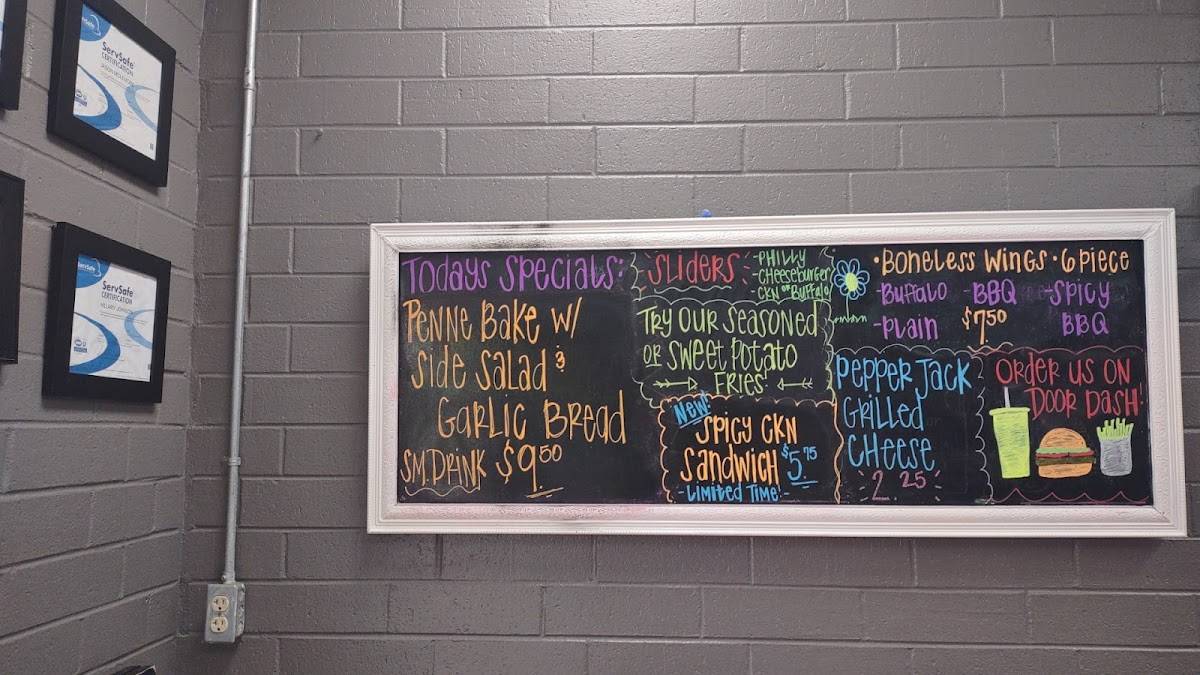 ServSafe
CERTIFICATION
ServSafe
ServSafe
CERTIFICATION
Todays Specials:
Penne Bake w/
Side Salad &
Garlic Bread
SM.Drink $9.50
Sliders
-Philly
-Cheeseburger
Ckn or Buffalo
Try our seasoned
or sweet potato
Fries
New!
Spicy Ckn
Sandwich $5.75
-Limited Time!-
•Boneless Wings • 6 piece
-Buffalo -BBQ -Spicy
-Plain $7.50 BBQ
Pepper Jack
Grilled
Cheese
2.25
Order us on
Door Dash!